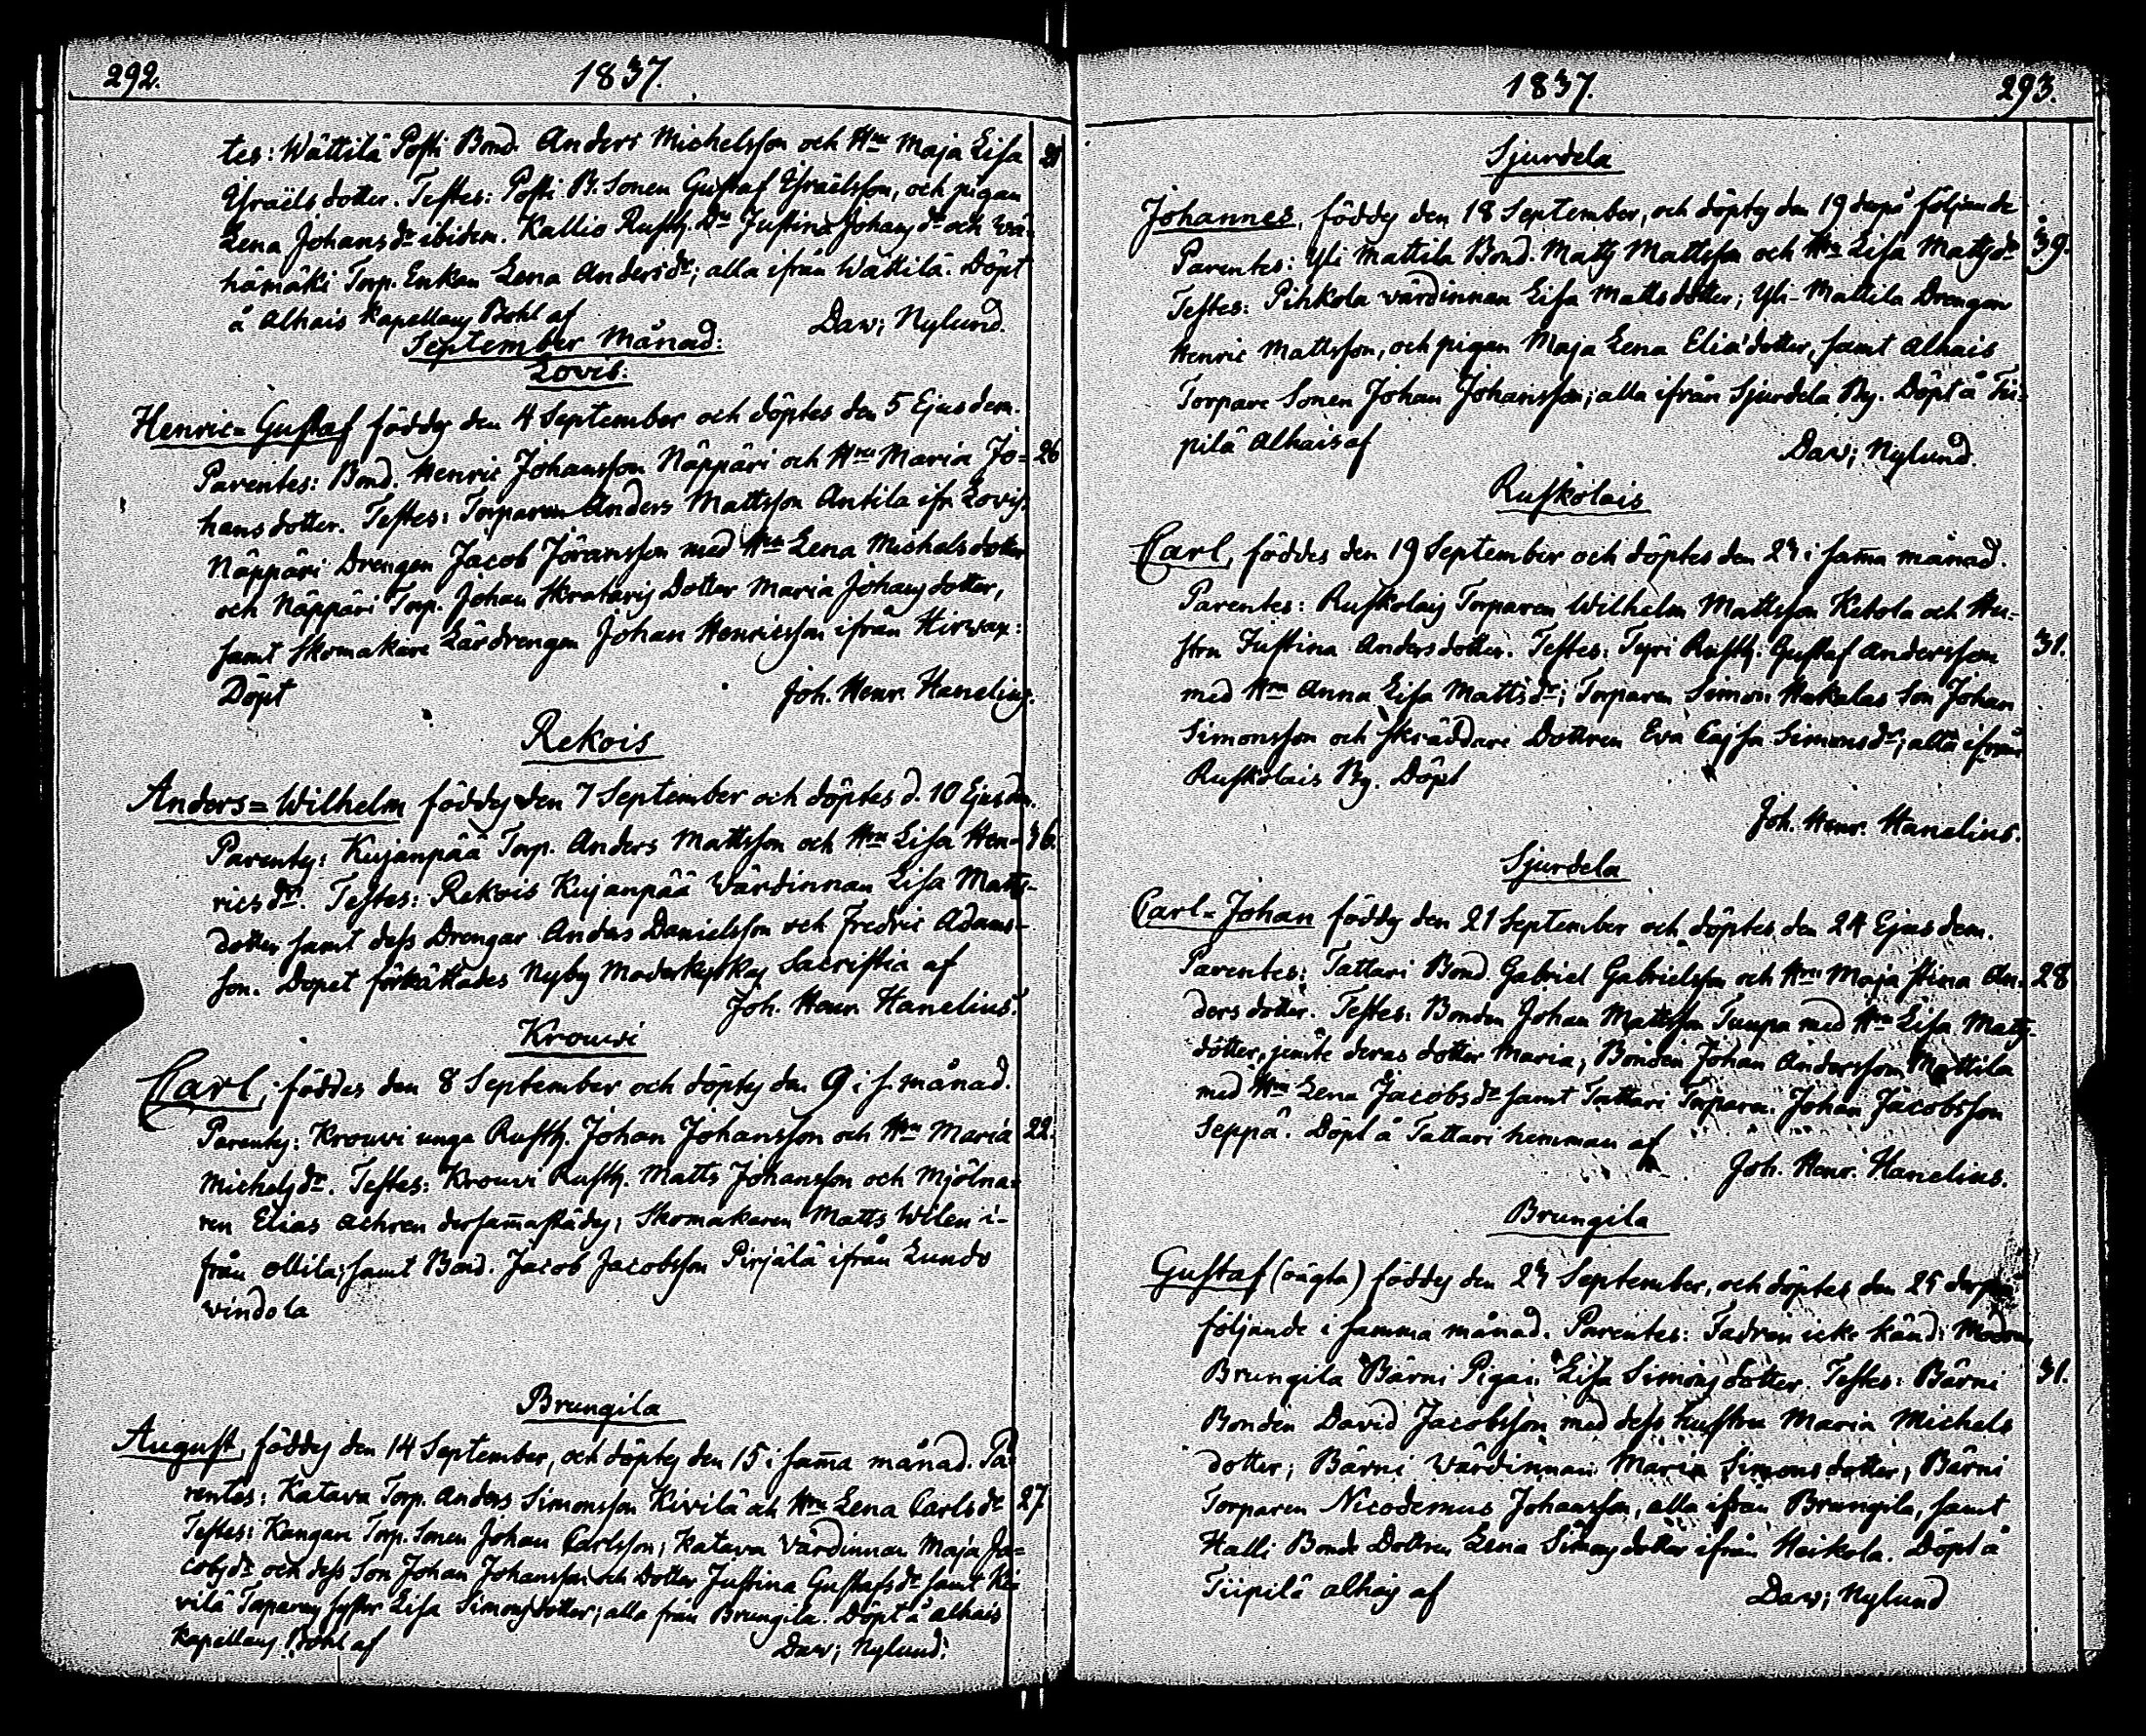 292.
1837.
tes: Wättilä Posti Bond. Anders Michelsson och Hru Maja Lisa
Israëlsdotter. Testes: Posti B. Sonen Gustaf Israëlsson, och pigan
Lena Johansdr ibidem. Kallio Rusth. Dn Justina Johansdr och Wä-
hämäki Torp. Enkan Lena Andersdr; alla ifrån Wättilä. Döpt
å Alhais Kapellans Bohl af
Dav; Nylund.
September Månad:
Lovis:
Henric=Gustaf föddes den 4 September och döptes den 5 Ejusdem.
Parentes: Bond. Henric Johansson Näppäri och Hru Maria Jo= 26
hansdotter. Testes: Torparen Anders Mattsson Antila ifr. Lovis.
Näppäri Drengen Jacob Jöransson med Hru Lena Michelsdotter
och Näppäri Torp. Johan Skrataris Dotter Maria Johansdotter,
samt Skomakare Lärdrengen Johan Henricsson ifrån Hirvax:
Döpt
Joh. Henr. Hanelius.
Rekois
Anders=Wilhelm föddes den 7 September och döptes d. 10 Ejusdm.
Parentes: Kujanpää Torp. Anders Mattsson och Hru Lisa Hen- 36.
ricsdr. Testes: Rekois Kujanpää Värdinnan Lisa Matts-
dotter samt dess Drengar Anders Danielsson och Fredric Adams-
son. Döpet förrättades Nyby Moderkyrkas Sacristia af
Joh. Henr. Hanelius.
Krouvi
Carl, föddes den 8 September och döptes den 9 i s. månad.
Parentes: Krouvi unga Rusth. Johan Johansson och Hru Maria 22.
Michelsdr. Testes: Krouvi Rusth. Matts Johansson och Mjölna=
ren Elias Achren dersam̄astädes; Skomakaren Matts Wilen i-
från Ollila; samt Bond. Jacob Jacobsson Pirjälä ifrån Lundo
vindola
Brungila
August, föddes den 14 September, och döptes den 15 i sam̄a månad. Pa=
rentes: Katava Torp. Anders Simonsson Kivilä och Hru Lena Carlsdr 27.
Testes: Kangare Torp. Sonen Johan Carlsson; Katava Värdinnan Maja Ja=
cobsdr och dess Son Johan Johansson och Dotter Justina Gustafsdr samt Ki=
vilä Torparens syster Lisa Simonsdotter; alla från Brungila. Döpt å Alhais
Kapellans Bohl af
Dav; Nylund.
1837.
293.
Sjurdela
Johannes, föddes den 18 September, och döptes den 19 derpå följande
Parentes: Yli Mattila Bond. Matts Mattsson och Hru Lisa Mattsdr 39.
Testes: Pihkola värdinnan Lisa Mattsdotter; Yli-Mattila Drengen
Henric Mattsson, och pigan Maja Lena Eliædotter, samt Alhais
Torpare Sonen Johan Johansson; alla ifrån Sjurdela By. Döpt å Tii-
pilä Alhais af
Dav; Nylund.
Ruskolais
Carl, föddes den 19 September och döptes den 23 i sam̄a månad.
Parentes: Ruskolais Torparen Wilhelm Mattsson Ketola och Hu-
strn Justina Andersdotter. Testes: Tyri Rusth. Gustaf Andersson 31.
med Hru Anna Lisa Mattsdr; Torparen Simon Hakalas Son Johan
Simonsson och Skräddare Dottren Eva Cajsa Simonsdr; alla ifrån
Ruskolais By. Döpt
Joh. Henr. Hanelius.
Sjurdela
Carl-Johan föddes den 21 September och döptes den 24 Ejusdem.
Parentes: Tattari Bond. Gabriel Gabrielsson och Hru Maja Stina An- 28
dersdotter. Testes: Bonden Johan Mattsson Tuupa med Hru Lisa Matts-
dotter, jemte deras dotter Maria; Bonden Johan Andersson Mattila
med Hru Lena Jacobsdr samt Tattari Torparen Johan Jacobsson
Seppä. Döpt å Tattari hemman af
Joh. Henr. Hanelius.
Brungila
Gustaf (oägta) föddes den 23 September, och döptes den 25 derpå
följande i samma månad. Parentes: Fadren icke känd: Modren
Brungila Bärni Pigan Lisa Simonsdotter. Testes: Bärni 31.
Bonden David Jacobsson med dess hustru Maria Michels
dotter; Bärni Värdinnan Maria Simonsdotter; Bärni
Torparen Nicodemus Johansson, alla ifrån Brungila, samt
Halli Bonde Dottren Lena Simonsdotter ifrån Heikola. Döpt å
Tiipilä Alhais af
Dav; Nylund